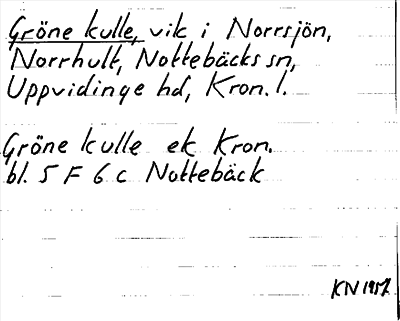 Gröne kulle, vik i Norrsjön,
Norrhult, Nottebäcks sn,
Uppvidinge hd, Kron. l.
Gröne kulle ek Kron.
bl. 5 F 6 c Nottebäck
KN